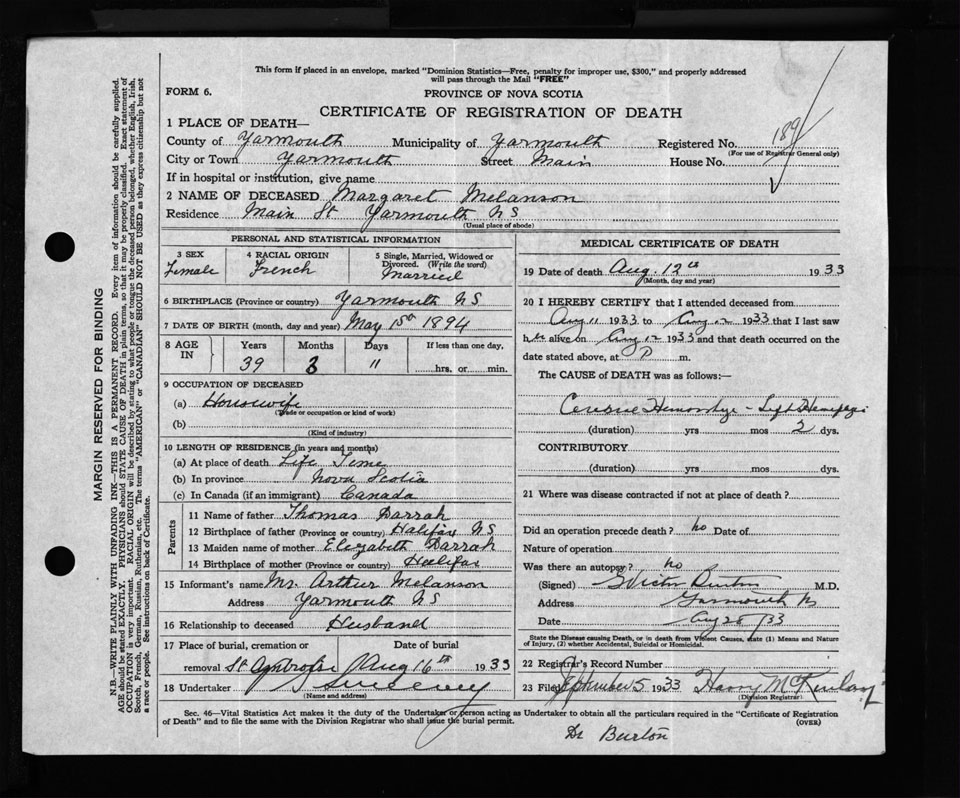 This form if placed in an envelope, marked "Dominion Statistics—Free, penalty for improper use, $300," and properly addressed
will pass through the Mail "FREE"
FORM 6.
PROVINCE OF NOVA SCOTIA
CERTIFICATE OF REGISTRATION OF DEATH
1 PLACE OF DEATH—
County of Yarmouth Municipality of Yarmouth Registered No. 189
(For use of Registrar General only)
City or Town Yarmouth Street Main House No.
If in hospital or institution, give name
2 NAME OF DECEASED Margaret Melanson
Residence Main St Yarmouth NS
(Usual place of abode)
PERSONAL AND STATISTICAL INFORMATION
3 SEX 4 RACIAL ORIGIN 5 Single, Married, Widowed or
Divorced. (Write the word)
Female French Married
6 BIRTHPLACE (Province or country) Yarmouth NS
7 DATE OF BIRTH (month, day and year) May 15th 1894
8 AGE IN Years Months Days If less than one day,
39 3 11 hrs. or min.
9 OCCUPATION OF DECEASED
(a) Housewife
(Trade or occupation or kind of work)
(b)
(Kind of industry)
10 LENGTH OF RESIDENCE (in years and months)
(a) At place of death Life Time
(b) In province Nova Scotia
(c) In Canada (if an immigrant) Canada
Parents
11 Name of father Thomas Darrah
12 Birthplace of father (Province or country) Halifax NS
13 Maiden name of mother Elizabeth Darrah
14 Birthplace of mother (Province or country) Halifax
15 Informant's name Mr. Arthur Melanson
Address Yarmouth NS
16 Relationship to deceased Husband
17 Place of burial, cremation or Date of burial
removal St Ambrose Aug 16th 1933
18 Undertaker Sweeney
(Name and address)
MEDICAL CERTIFICATE OF DEATH
19 Date of death Aug. 12th 1933
(Month, day and year)
20 I HEREBY CERTIFY that I attended deceased from
Aug 11 1933 to Aug 12 1933 that I last saw
her alive on Aug 12 1933 and that death occurred on the
date stated above, at P m.
The CAUSE of DEATH was as follows:—
Hemorrhage - Left
(duration) yrs mos 2 dys.
CONTRIBUTORY
(duration) yrs mos dys.
21 Where was disease contracted if not at place of death?
Did an operation precede death? no Date of
Nature of operation
Was there an autopsy? no
(Signed) Burton M.D.
Address Yarmouth
Date Aug 28/33
State the Disease causing Death, or in death from Violent Causes, state (1) Means and Nature
of Injury, (2) whether Accidental, Suicidal or Homicidal.
22 Registrar's Record Number
23 Filed September 5 1933 Harry McKinlay
(Division Registrar)
Sec. 46—Vital Statistics Act makes it the duty of the Undertaker or person acting as Undertaker to obtain all the particulars required in the "Certificate of Registration
of Death" and to file the same with the Division Registrar who shall issue the burial permit. (OVER)
Dr Burton
MARGIN RESERVED FOR BINDING
N.B.—WRITE PLAINLY WITH UNFADING INK—THIS IS A PERMANENT RECORD. Every item of information should be carefully supplied.
AGE should be stated EXACTLY. PHYSICIANS should STATE CAUSE OF DEATH in plain terms, so that it may be properly classified. Exact statement of
OCCUPATION is very important. RACIAL ORIGIN will be described by stating to what people or tongue the deceased person belonged, whether English, Irish,
Scotch, French, German, Russian, Ruthenian, etc. The terms "AMERICAN" or "CANADIAN" SHOULD NOT BE USED as they express citizenship but not
a race or people. See instructions on back of Certificate.